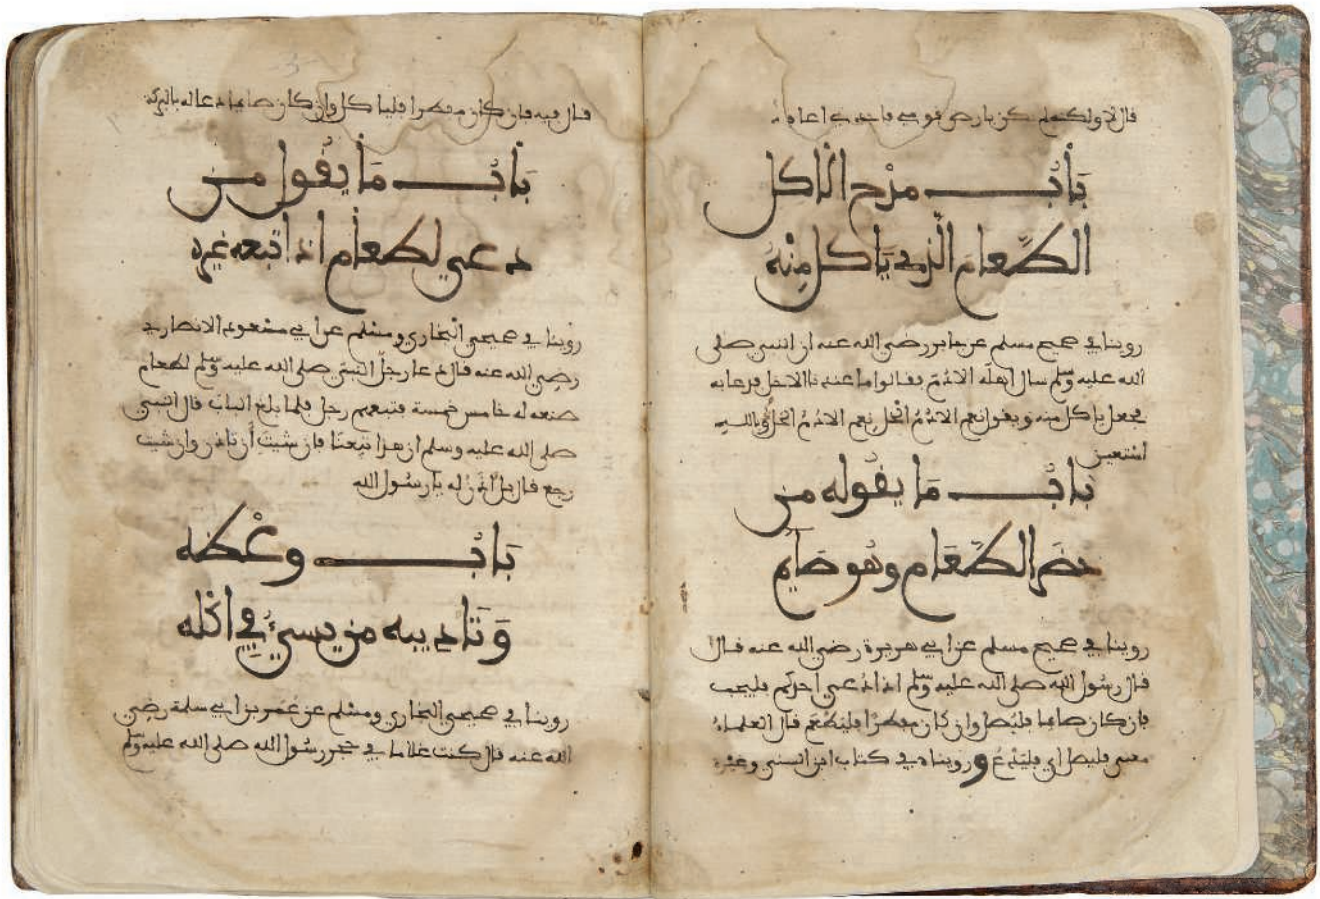 قال لا ولكنه لم يكن بارض قومي فاجدني اعافه
بَابُ مدْح الاكل
الطَّعامَ الَّذي يَاكل مِنْهُ
روينا في صحيح مسلم عن جابر رضي الله عنه ان النبي صلى
الله عليه وسلم سال اهله الادُمَ فقالوا ما عندنا الا خل فدعا به
فجعل ياكل منه ويقول نعم الادُمُ الخل نعم الادُمُ الخلُّ وبالله
استعين
بَابُ مَا يقُوله من
حضر الطَّعَام وهُو صَايم
روينا في صحيح مسلم عن ابي هريرة رضي الله عنه قال
قال رسُول الله صلى الله عليه وسلم اذا دُعي احدكم فليجب
فان كان صايما فليُصل وان كان مفطرًا فليَطْعَم قال العلماءُ
معنى فليصل اي فليَدْعُ وروينا في كتاب ابن السني وغيره
قال فيه فان كان مفطرا فلياكل وان كان صايما دعا له بالبركة
بَابُ مَا يقُول من
دعي لطعام اذا تبعه غيره
رُوينا في صحيحي البخاري ومسْلم عن ابي مسْعود الانصاري
رضِي الله عنه قال دعا رجلٌ النبيَّ صلى الله عليه وسلم لطعام
صنعه له خامس خمسة فتبعهم رجل فلما بلغ البابَ قال النبي
صلى الله عليه وسلم ان هذا تبعنا فان شيت أن تاذن وان شيت
رجع قال بل آذَنُ له يا رسُول الله
بَابُ وعْظه
وَتَاديبه من يسيءُ في اكْله
روينا في صحيحي البخاري ومسْلم عن عُمَر بن ابي سلمة رضِي
الله عنه قال كنت غلاما في حجر رسُول الله صلى الله عليه وسلم